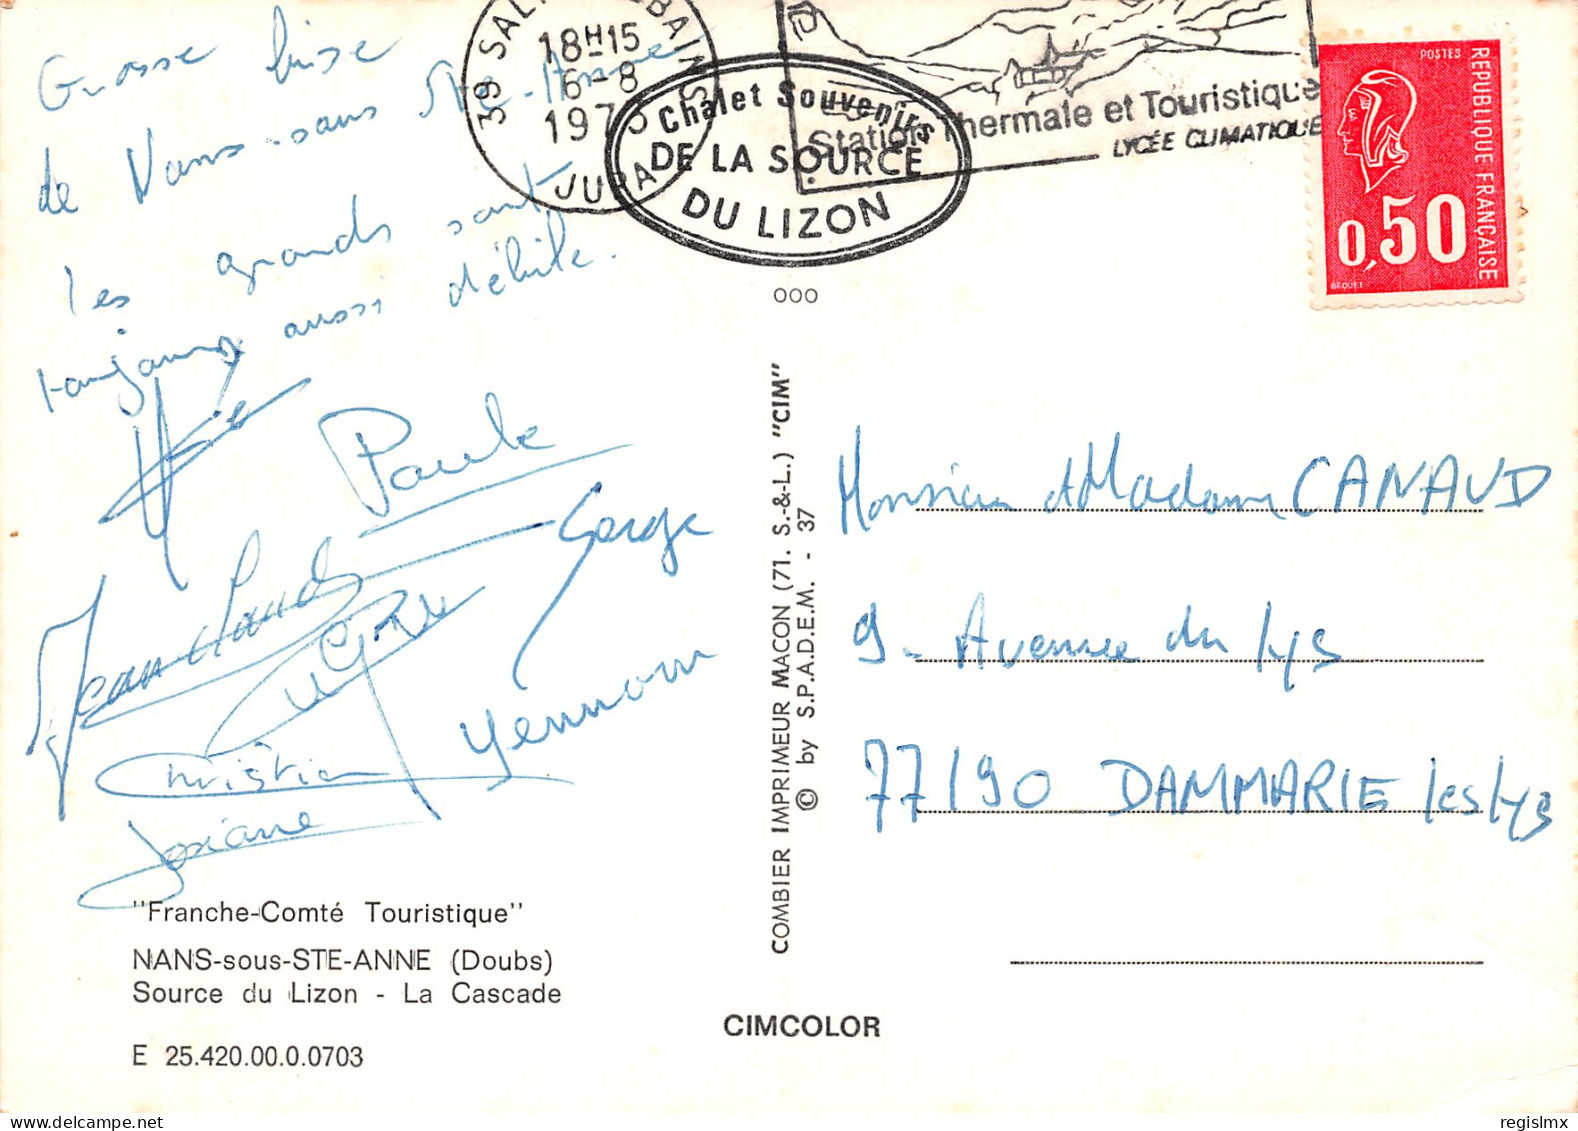 Grosse bise
de Nans-sous Ste-Anne
les grands sont
toujours aussi débile.
Paule
Serge
Jean Claude
Yennom
Christian
Josiane
"Franche-Comté Touristique"
NANS-sous-STE-ANNE (Doubs)
Source du Lizon - La Cascade
E 25.420.00.0.0703
CIMCOLOR
COMBIER IMPRIMEUR MACON (71. S.-&-L.) "CIM"
© by S.P.A.D.E.M. - 37
39 SAL BAINS
18H15
6-8
197
JURA
Chalet Souvenirs
DE LA SOURCE
DU LIZON
000
Station Thermale et Touristique
LYCÉE CLIMATIQUE
POSTES
REPUBLIQUE FRANÇAISE
0,50
BEQUET
Monsieur et Madame CANAUD
9- Avenue du Lys
77190 DAMMARIE les Lys
regislmx